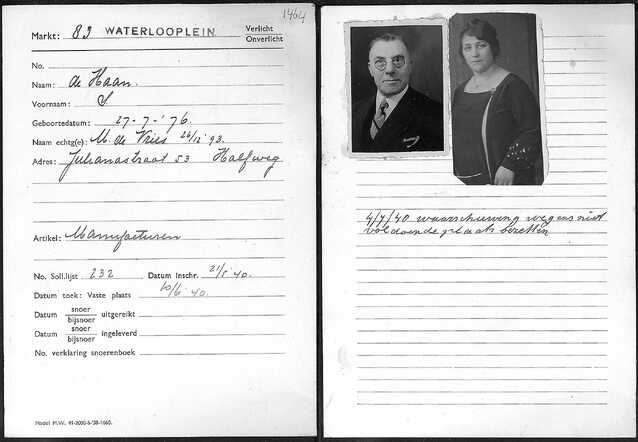 1464
Markt: 83 WATERLOOPLEIN. Verlicht
Onverlicht
No.
Naam: de Haan.
Voornaam: S.
Geboortedatum: 27-7-'76.
Naam echtg(e): M. de Vries 26/12 '93.
Adres: Julianastraat 53 Halfweg
Artikel: Manufacturen
No. Soll.lijst 232 Datum Inschr. 21/5 '40.
Datum toek: Vaste plaats 10/6 '40.
Datum snoer uitgereikt
bijsnoer
Datum snoer ingeleverd
bijsnoer
No. verklaring snoerenboek
Model M.W. 41-2000-6-'38-1660.
4/7/40 waarschuwing wegens niet
voldoende plaats bezetten